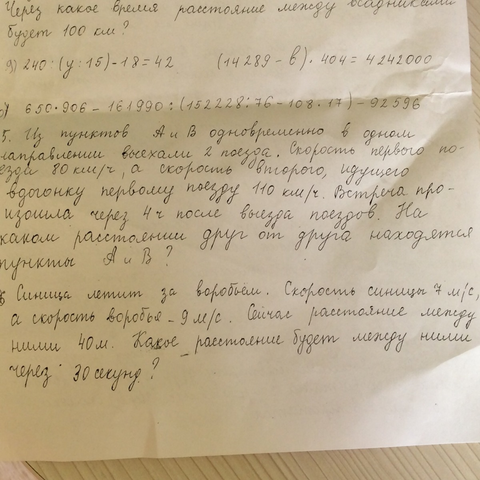 Через какое время расстояние между всадниками
будет 100 км?
а) 240:(у:15)-18=42 (14289-в)·404=4242000
б) 650·906-161990:(152228:76-108·17)-92596
5. Из пунктов А и В одновременно в одном
направлении выехали 2 поезда. Скорость первого по-
езда 80 км/ч, а скорость второго, идущего
вдогонку первому поезду 110 км/ч. Встреча про-
изошла через 4 ч после выезда поездов. На
каком расстоянии друг от друга находятся
пункты А и В?
6 Синица летит за воробьём. Скорость синицы 7 м/с,
а скорость воробья - 9 м/с. Сейчас расстояние между
ними 40 м. Какое расстояние будет между ними
через 30 секунд?